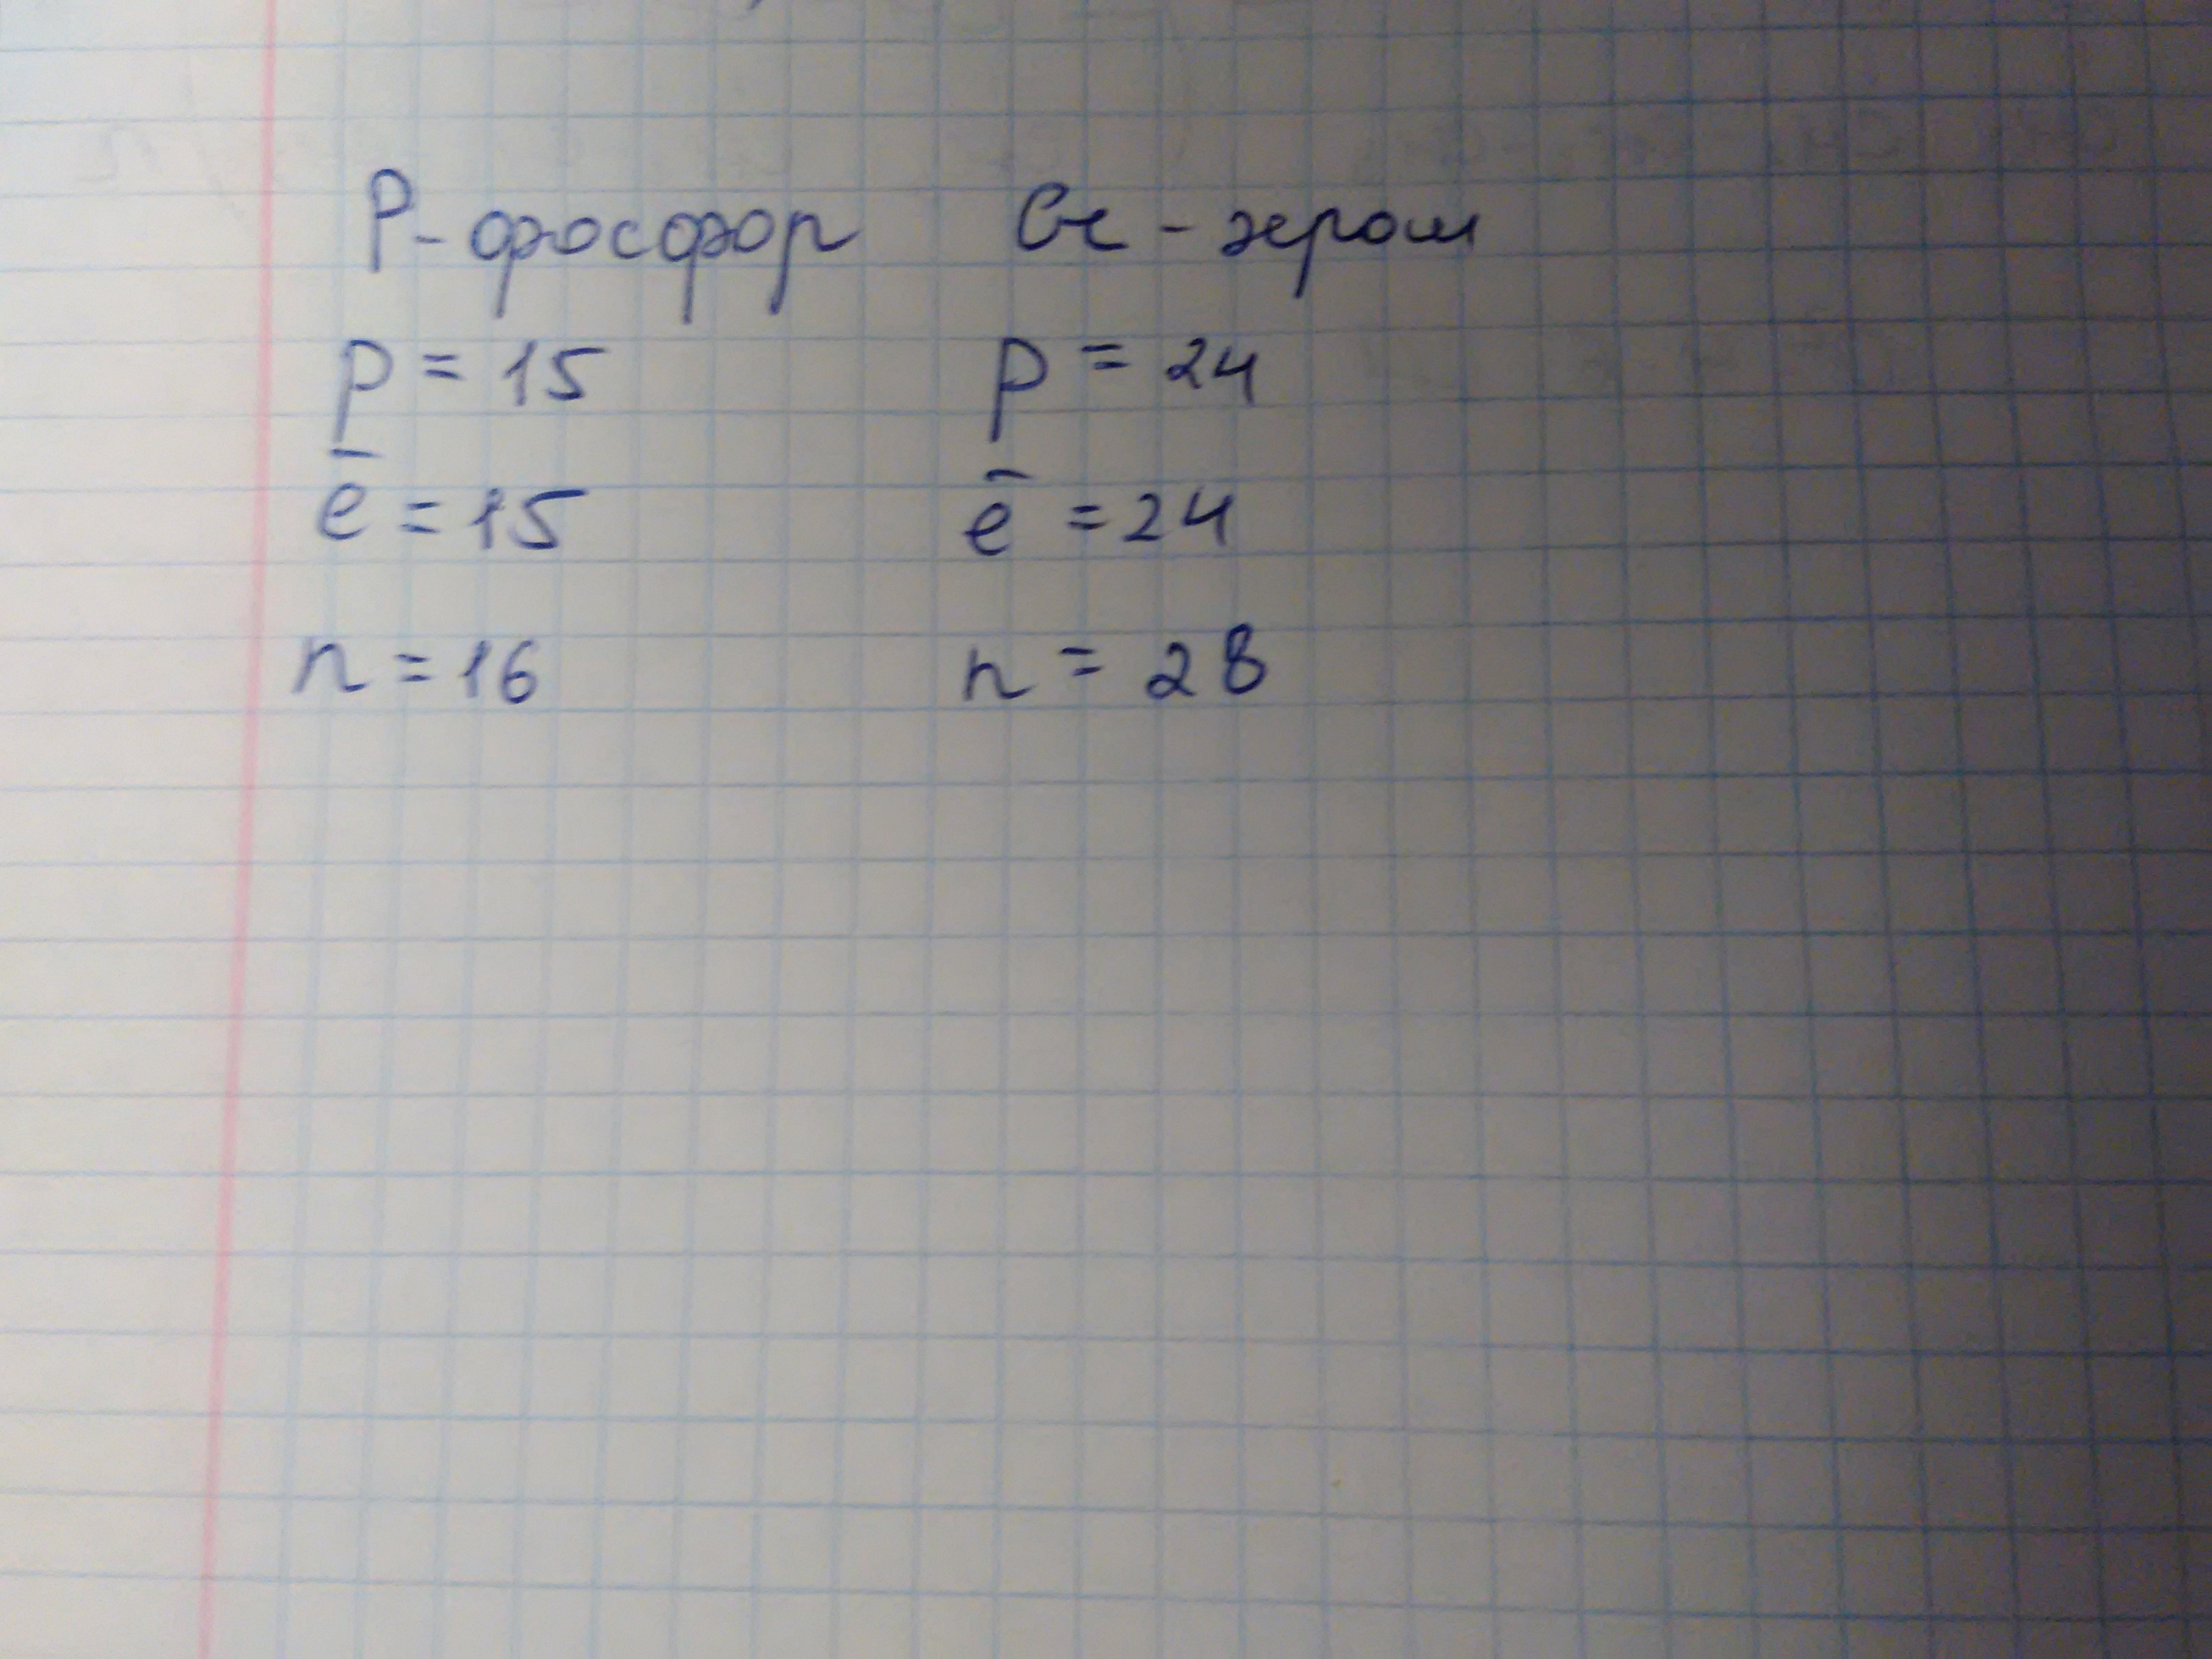 P-фосфор Cr - хром
p = 15 p = 24
ē = 15 ē = 24
n = 16 n = 28